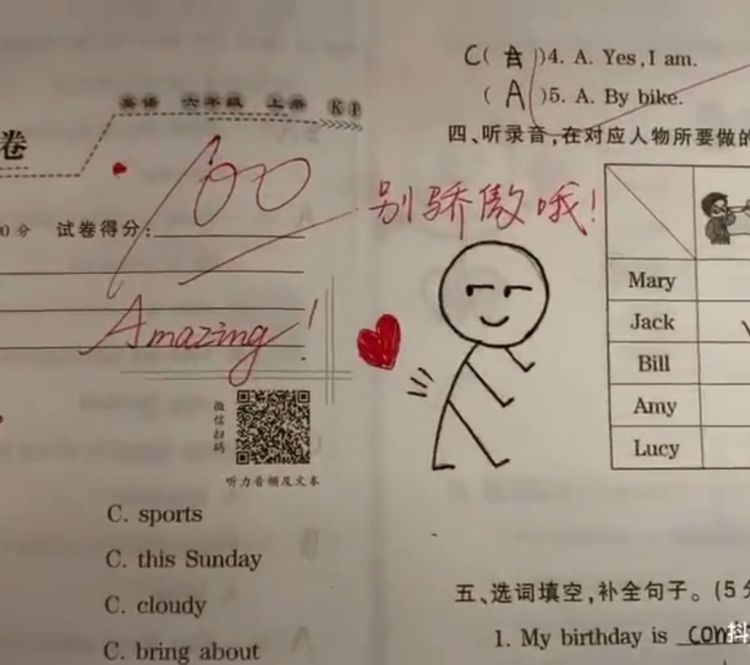 英语 六年级 上册 RP
卷
100
0分 试卷得分:
Amazing!
微信扫码
听力音频及文本
C. sports
C. this Sunday
C. cloudy
C. bring about
C( )4. A. Yes, I am.
( A )5. A. By bike.
四、听录音,在对应人物所要做的
别骄傲哦!
Mary
Jack
Bill
Amy
Lucy
五、选词填空,补全句子。(5分
1. My birthday is com
抖